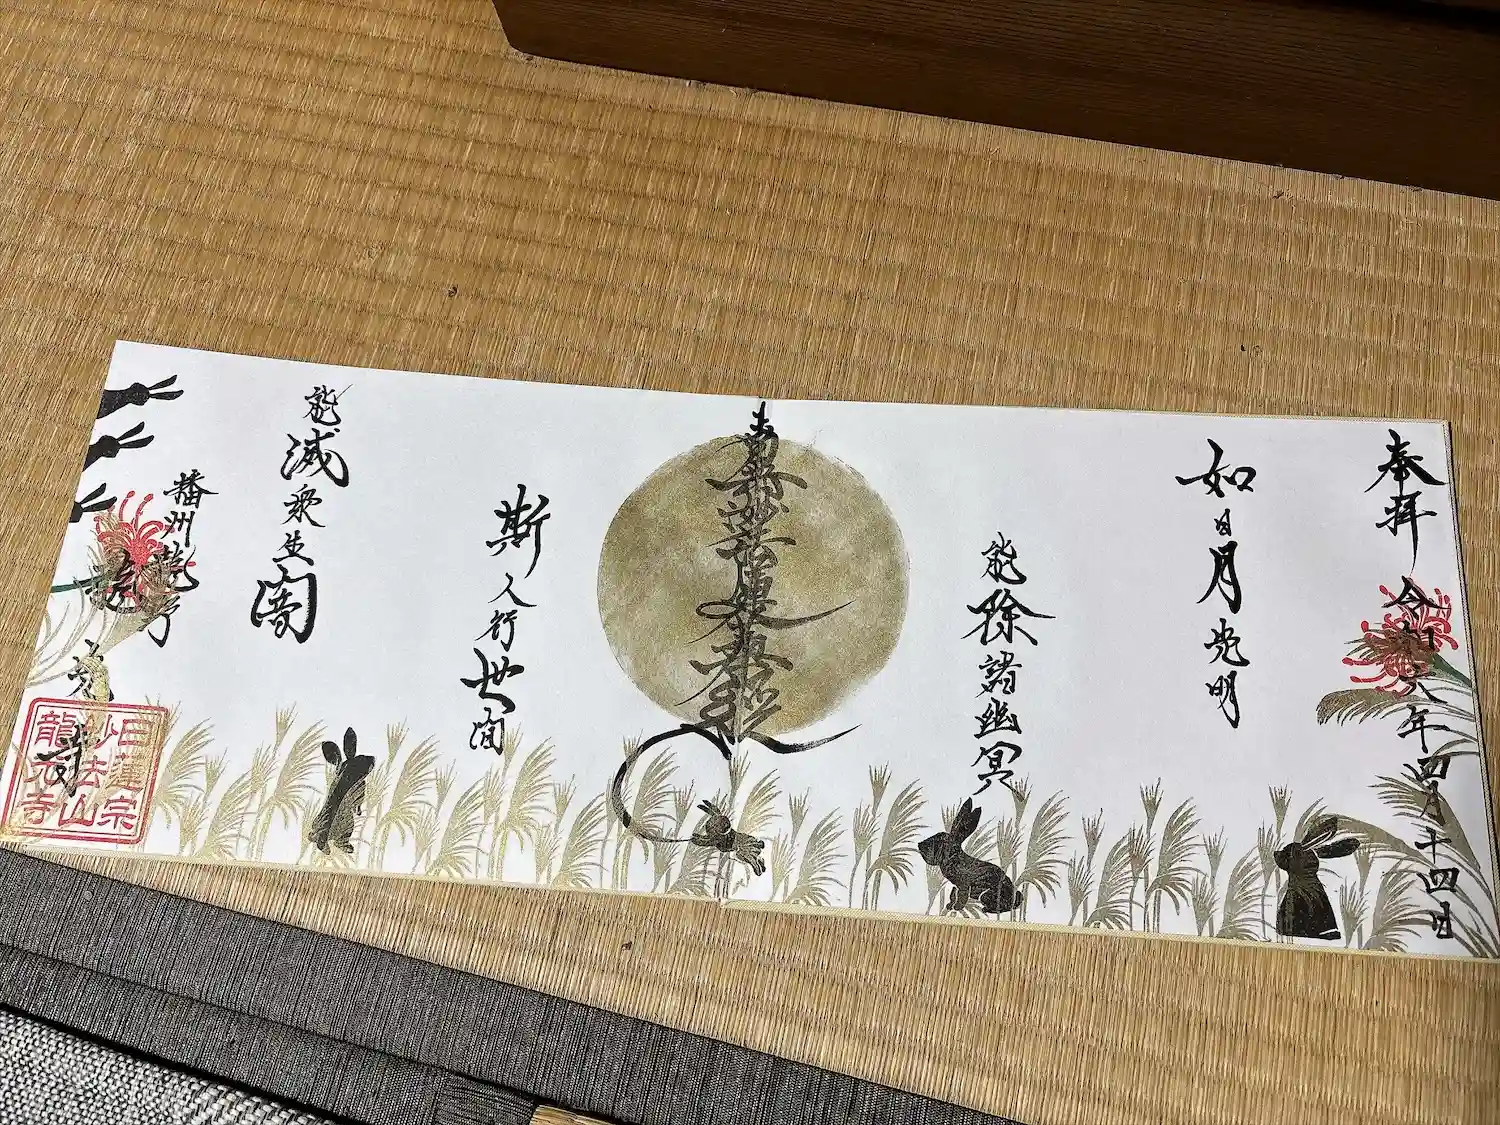 奉拝 令和六年四月十四日
如日月光明
能除諸幽冥
南無妙法蓮華経
斯人行世間
能滅衆生闇
播州
日蓮宗
妙法山